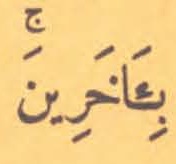 بِـَٔاخَرِينَۚ